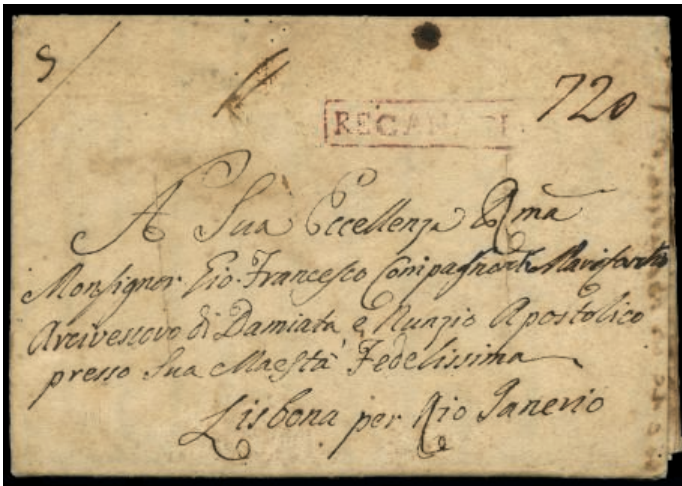 720
RECANATI
A Sua Eccellenza Rma
Monsignor Gio. Francesco Compagnoni Marefoschi
Arcivescovo di Damiata e Nunzio Apostolico
presso Sua Maestà Fedelissima
Lisbona per Rio Janerio